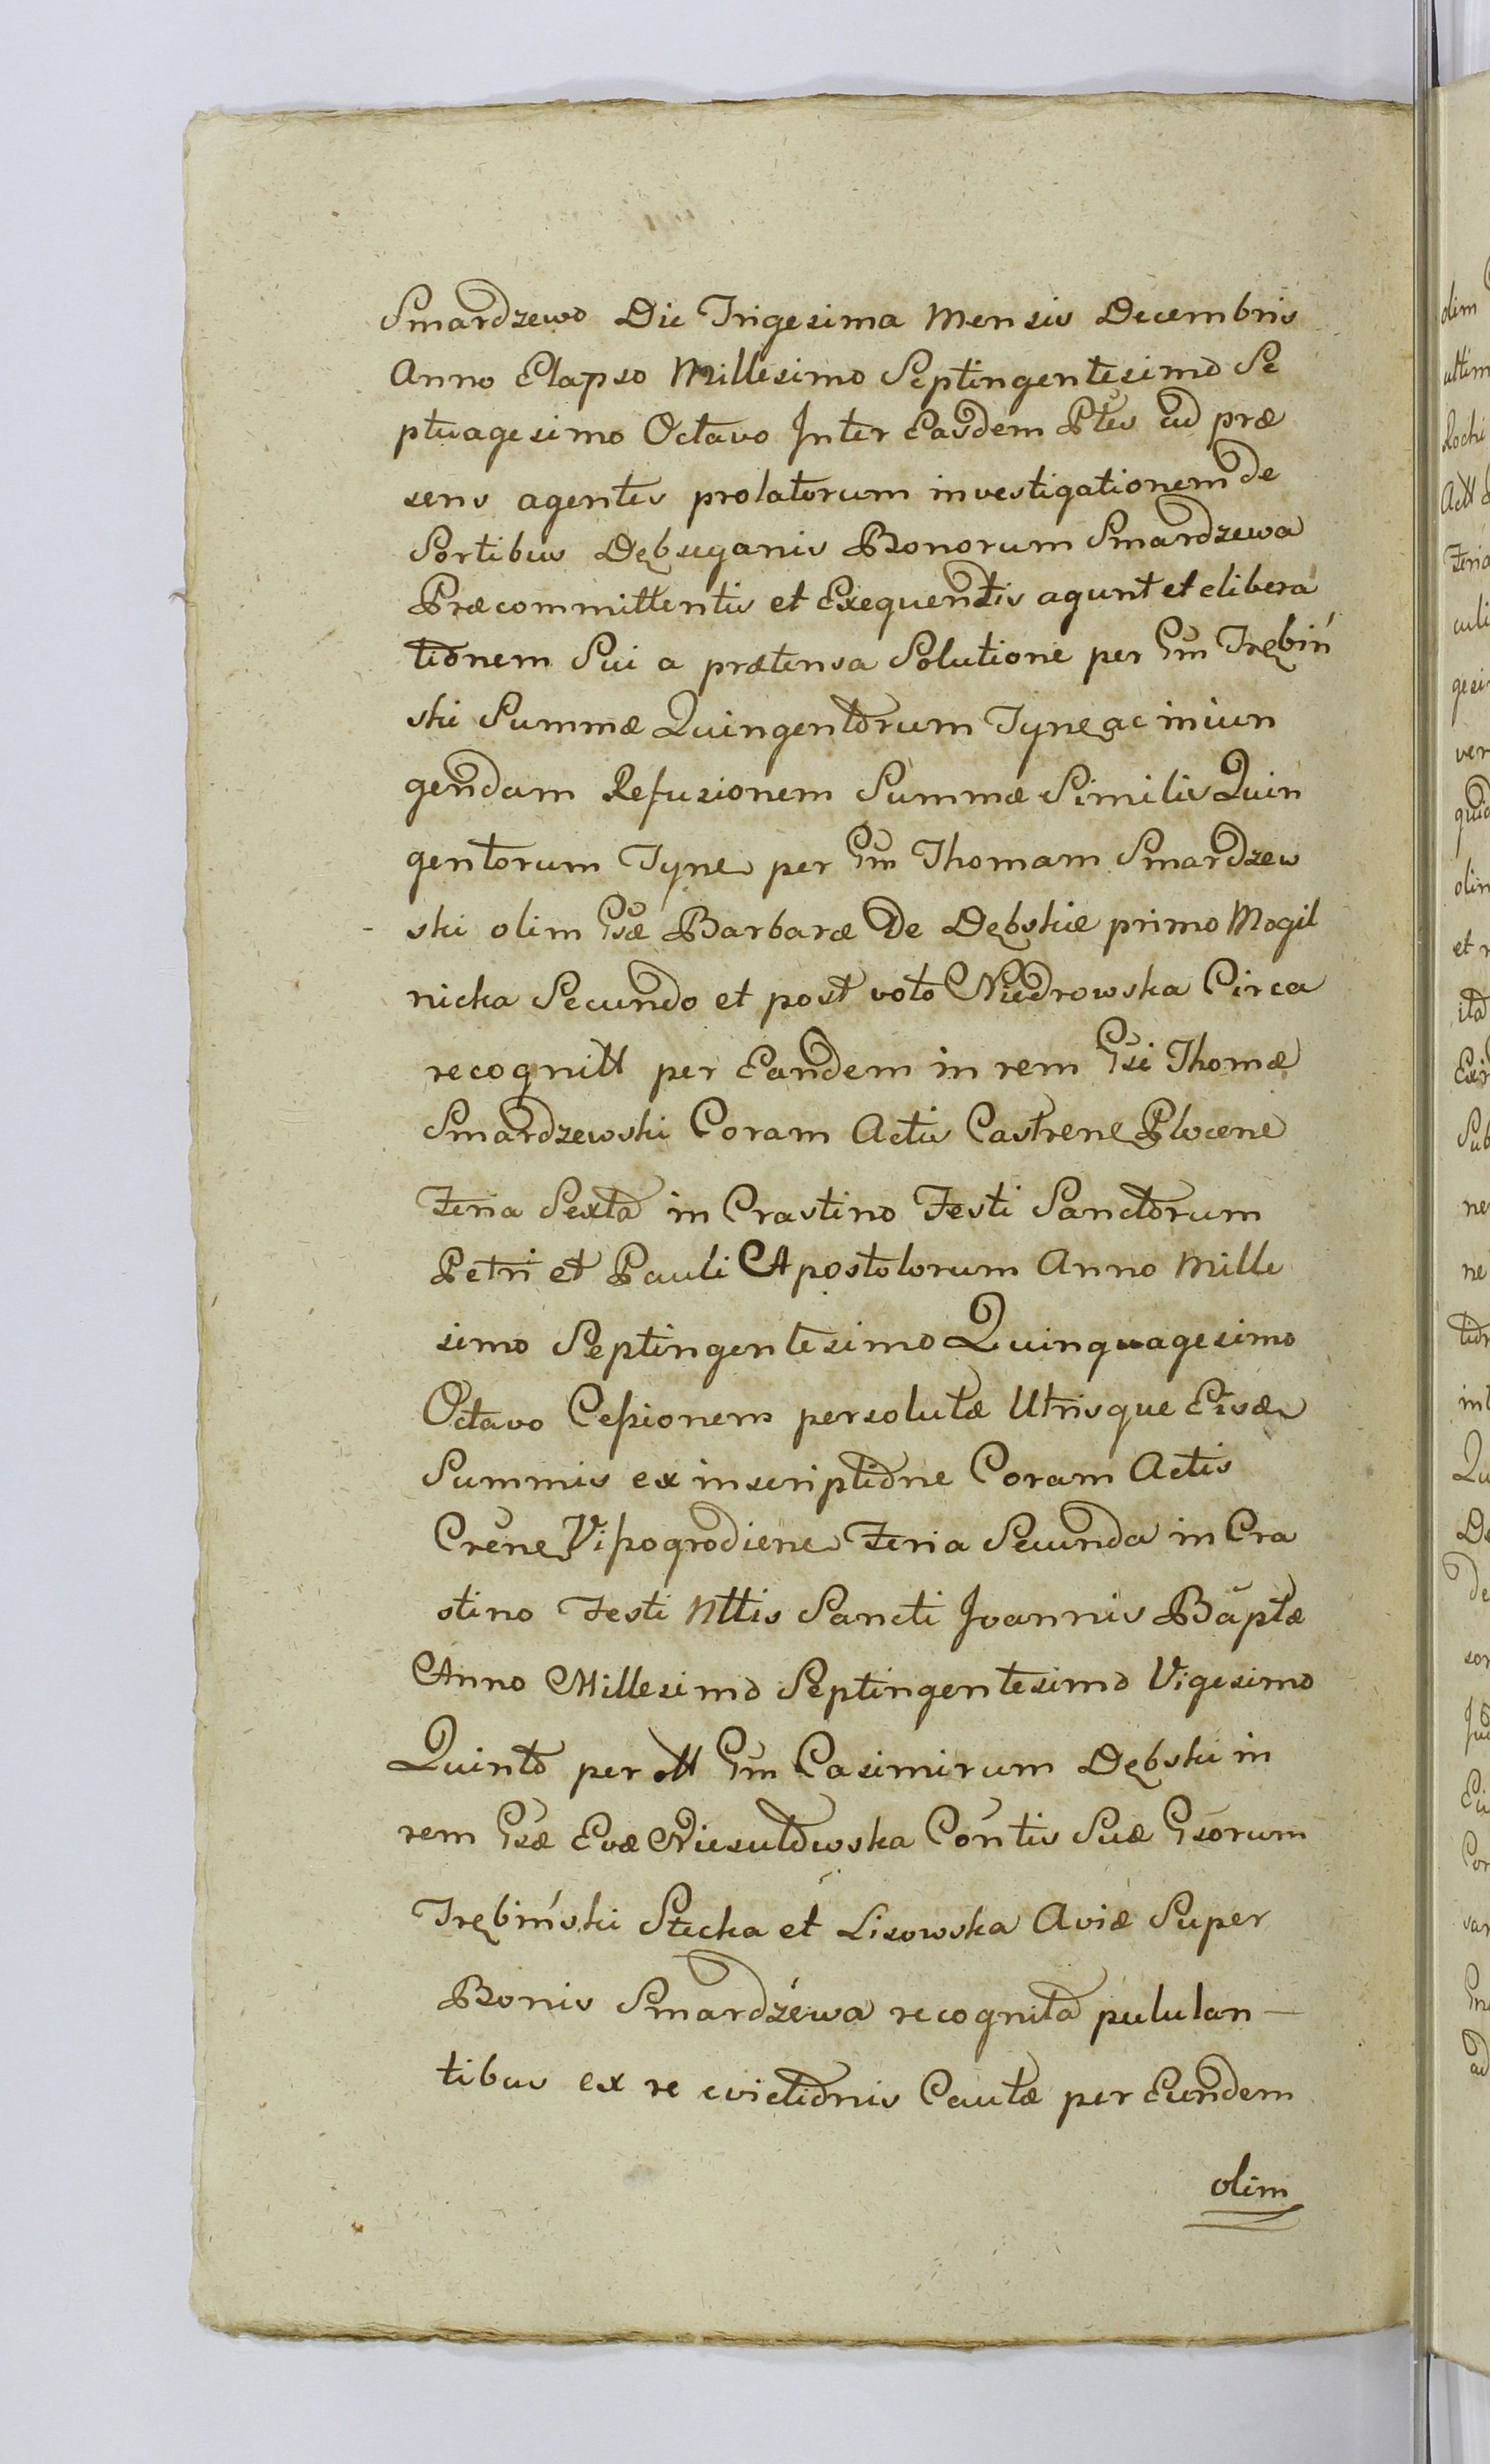 Smardzewo Die Trigesima Mensis Decembris
Anno Elapso Millesimo Septingentesimo Se
ptuagesimo Octavo Inter Easdem Ptes ad præ
sens agentes prolatorum investigationem de
Sortibus Dębsuganis Bonorum Smardzewa
Præcommittentis et Exequentis agunt et elibera
tionem Sui a prætensa Solutione per Gm Trębiń
ski Summæ Quingentorum Tyne ac iniun
gendam Refusionem Summæ Similis Quin
gentorum Tyne per Gm Thomam Smardzew
ski olim Gsæ Barbaræ de Dębskie primo Mogil
nicka Secundo et post voto Niedrowska Circa
recognitt per Eandem in rem Gsi Thomæ
Smardzewski Coram Actis Castrene Plocene
Feria Sexta in Crastino Festi Sanctorum
Petri et Pauli Apostolorum Anno Mille
simo Septingentesimo Quinquagesimo
Octavo Cessionem persolutæ Utrisque Eisæ
Summis ex inscriptione Coram Actis
Crene Vissogrodiene Feria Secunda in Cra
stino Festi Nttis Sancti Joannis Baptæ
Anno Millesimo Septingentesimo Vigesimo
Quinto per ott Gm Casimirum Dębski in
rem Gsæ Evæ Niesułowska Contis Suæ Gsorum
Trębiński Stecka et Lisowska Aviæ Super
Bonis Smardzéwa recognita pululan-
tibus ex re evictionis Cautæ per Eundem
olim